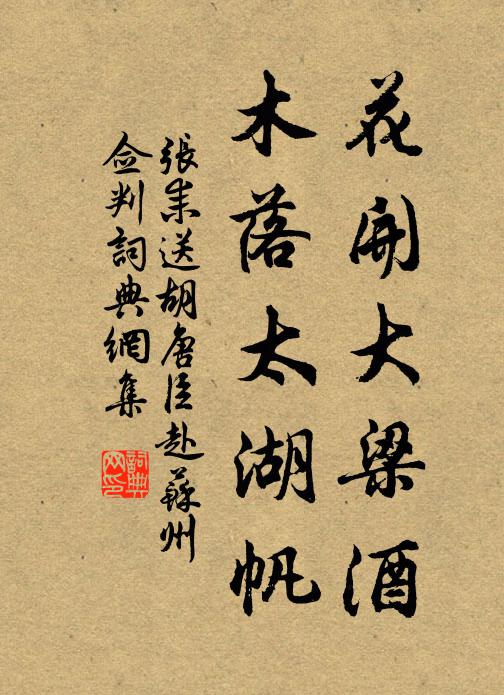 花開大梁酒
木落太湖帆
張耒送胡唐臣赴蘇州
僉判詞典網集
詞典
网印